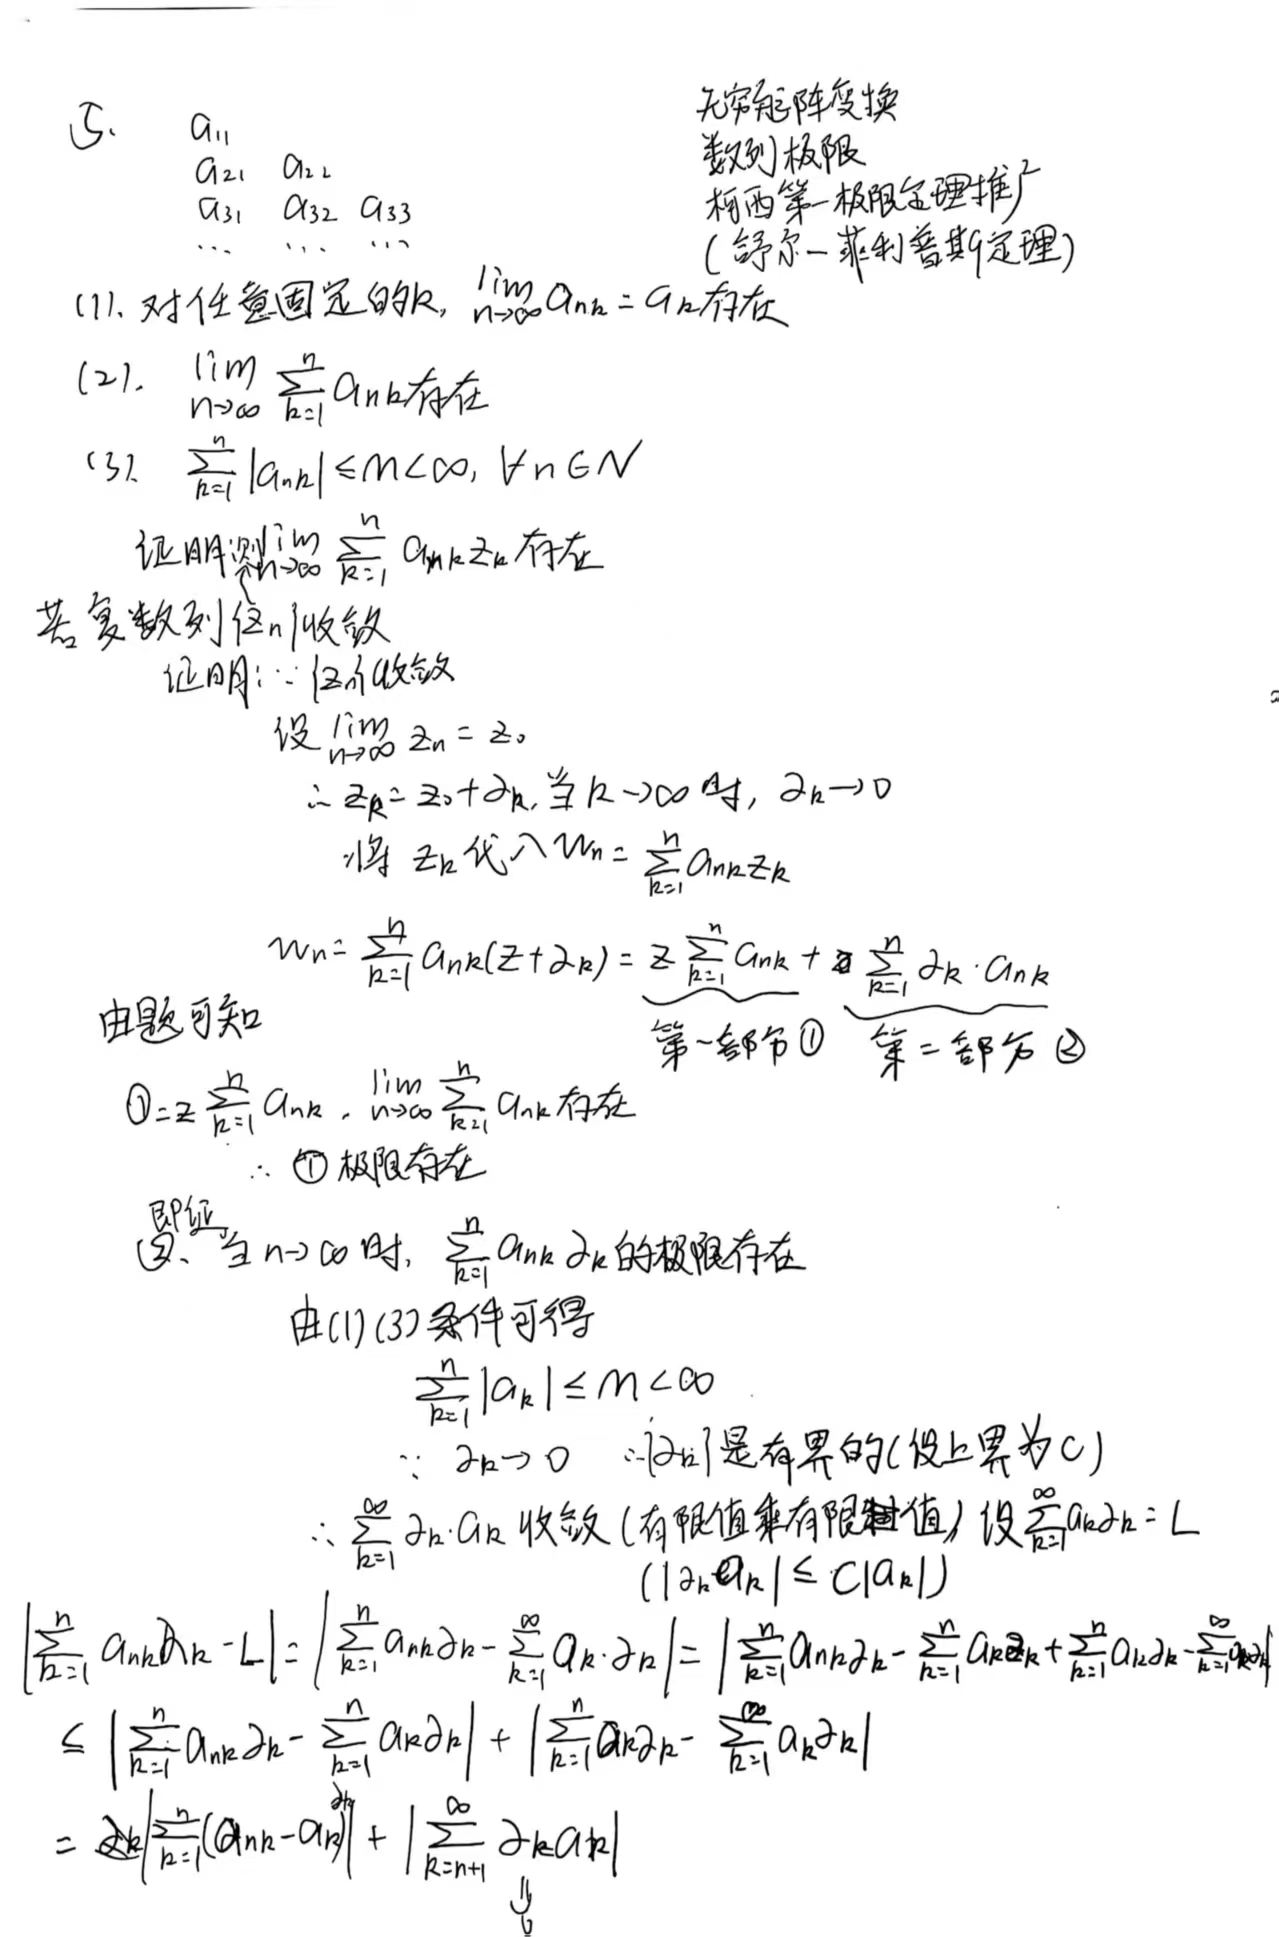 无穷矩阵变换
数列极限
柯西第一极限定理推广
(舒尔-菲利普斯定理)
5. a₁₁
a₂₁ a₂₂
a₃₁ a₃₂ a₃₃
... ... ...
(1). 对任意固定的k, lim_{n→∞} a_{nk} = a_k存在
(2). lim_{n→∞} ∑_{k=1}^{n} a_{nk}存在
(3). ∑_{k=1}^{n} |a_{nk}| ≤ M < ∞, ∀n∈N
证明:则lim_{n→∞} ∑_{k=1}^{n} a_{nk} z_k 存在
若复数列{z_n}收敛
证明:∵{z_n}收敛
设 lim_{n→∞} z_n = z₀
∴ z_k = z₀ + ∂_k, 当k→∞时, ∂_k→0
将 z_k 代入 w_n = ∑_{k=1}^{n} a_{nk} z_k
w_n = ∑_{k=1}^{n} a_{nk}(z+∂_k) = z ∑_{k=1}^{n} a_{nk} + ∑_{k=1}^{n} ∂_k·a_{nk}
第一部分① 第二部分②
由题可知
①=z ∑_{k=1}^{n} a_{nk}, lim_{n→∞} ∑_{k=1}^{n} a_{nk}存在
∴ ①极限存在
即证
②、当n→∞时, ∑_{k=1}^{n} a_{nk} ∂_k的极限存在
由(1)(3)条件可得
∑_{k=1}^{n} |a_k| ≤ M < ∞
∵ ∂_k→0 ∴{∂_k}是有界的(设上界为C)
∴ ∑_{k=1}^{∞} ∂_k·a_k 收敛(有限值乘有限值) 设∑_{k=1}^{∞} a_k∂_k = L
(|∂_k a_k| ≤ C|a_k|)
|∑_{k=1}^{n} a_{nk}∂_k - L| = |∑_{k=1}^{n} a_{nk}∂_k - ∑_{k=1}^{∞} a_k·∂_k| = |∑_{k=1}^{n} a_{nk}∂_k - ∑_{k=1}^{n} a_k∂_k + ∑_{k=1}^{n} a_k∂_k - ∑_{k=1}^{∞} a_k∂_k|
≤ |∑_{k=1}^{n} a_{nk}∂_k - ∑_{k=1}^{n} a_k∂_k| + |∑_{k=1}^{n} a_k∂_k - ∑_{k=1}^{∞} a_k∂_k|
= |∑_{k=1}^{n} (a_{nk}-a_k)∂_k| + |∑_{k=n+1}^{∞} ∂_k a_k|
⇓
0